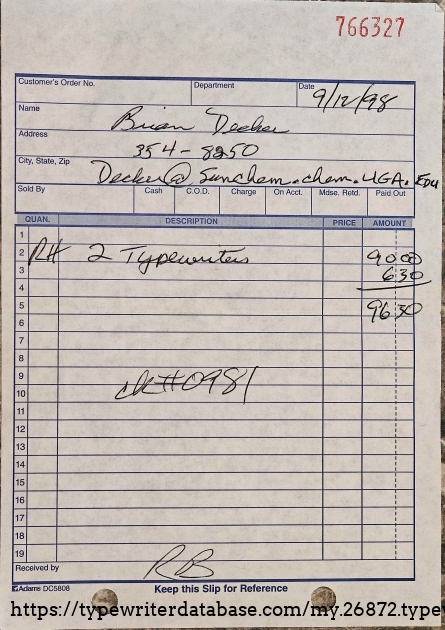 766327
Customer's Order No. Department Date 9/12/98
Name Brian Decker
Address 354-8250
City, State, Zip Decker@Sunchem.chem.UGA.Edu
Sold By Cash C.O.D. Charge On Acct. Mdse. Retd. Paid Out
QUAN. DESCRIPTION PRICE AMOUNT
1
2 RH 2 Typewriters 90 00
3 6 30
4
5 96 30
6
7
8
9
10 ck#0981
11
12
13
14
15
16
17
18
19
Received by RB
Adams DC5808 Keep this Slip for Reference
https://typewriterdatabase.com/my.26872.type